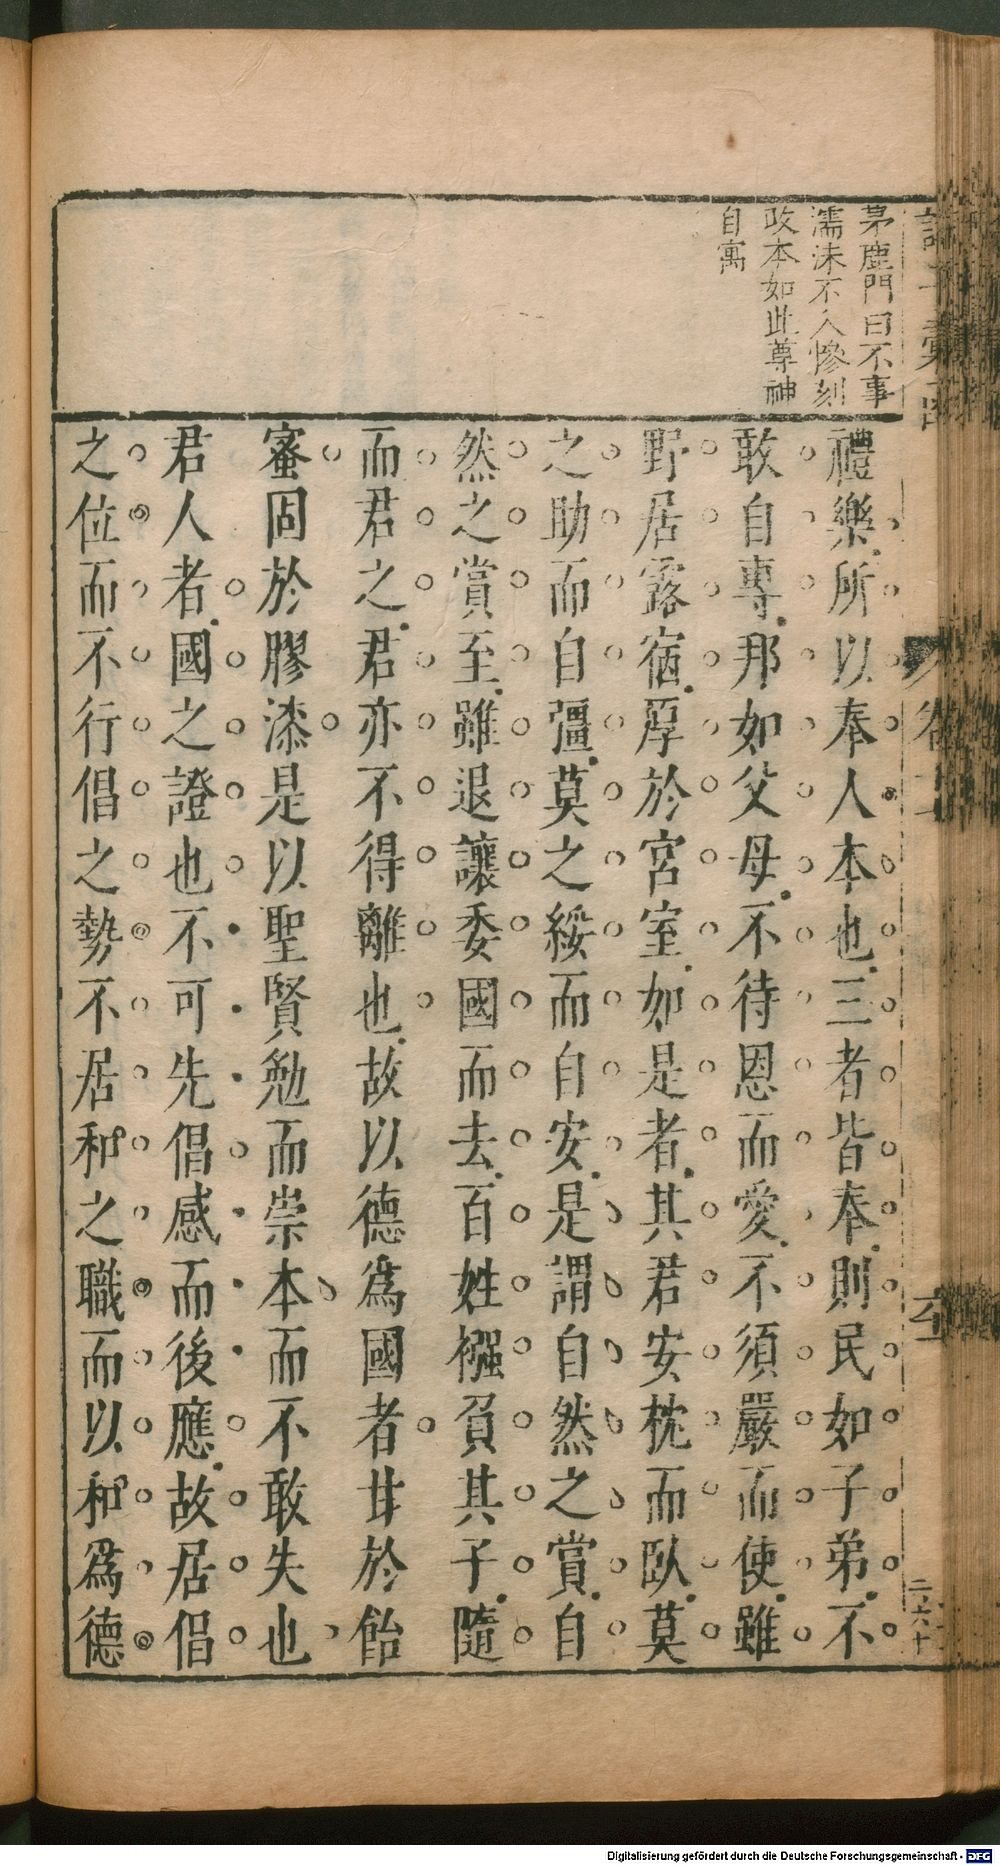 茅鹿門曰不事
濡沫不入慘刻
政本如此尊神
自寓
禮樂所以奉人本也三者皆奉則民如子弟不
敢自專邦如父母不待恩而愛不須嚴而使雖
野居露宿厚於宮室如是者其君安枕而臥莫
之助而自彊莫之綏而自安是謂自然之賞自
然之賞至雖退讓委國而去百姓襁負其子隨
而君之君亦不得離也故以德爲國者甘於飴
蜜固於膠漆是以聖賢勉而崇本而不敢失也
君人者國之證也不可先倡感而後應故居倡
之位而不行倡之勢不居和之職而以和爲德
Digitalisierung gefördert durch die Deutsche Forschungsgemeinschaft - DFG